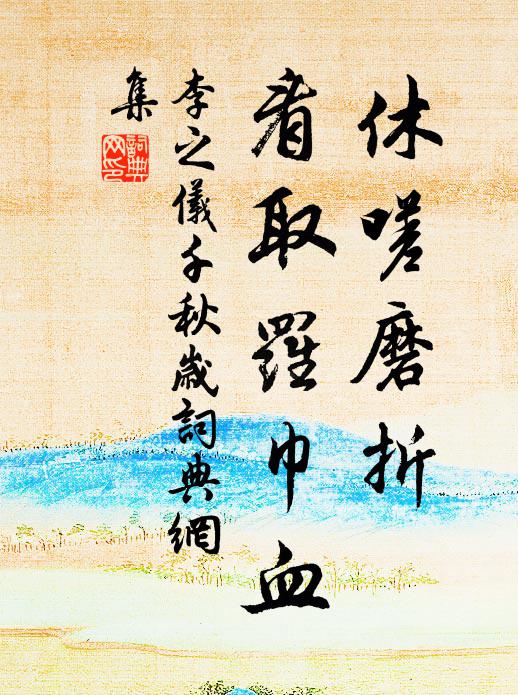 休嗟磨折
看取羅巾血
李之儀千秋歲詞典網
集
詞典
网印